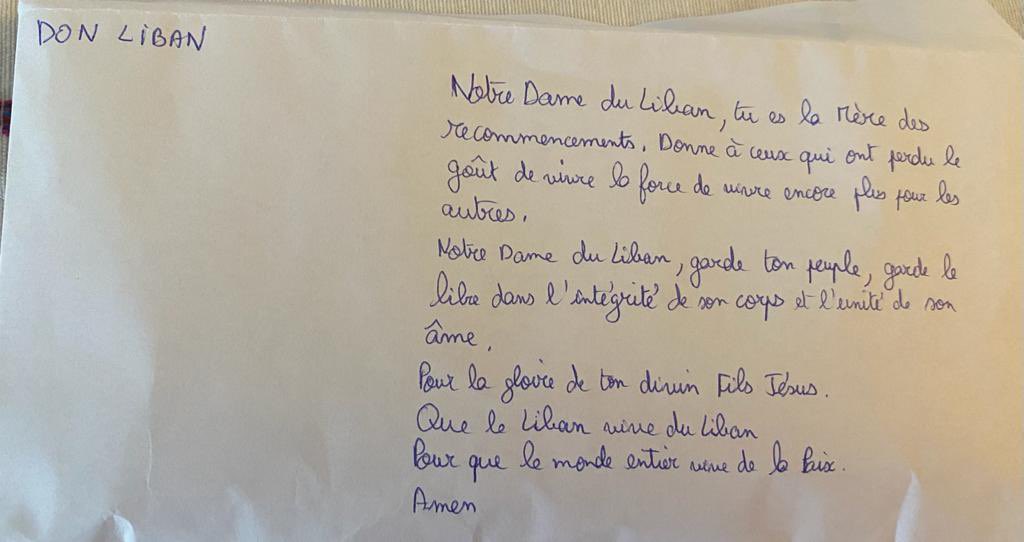 DON LIBAN
Notre Dame du Liban, tu es la Mère des
recommencements. Donne à ceux qui ont perdu le
goût de vivre la force de vivre encore plus pour les
autres.
Notre Dame du Liban, garde ton peuple, garde le
libre dans l'intégrité de son corps et l'unité de son
âme.
Pour la gloire de ton divin Fils Jésus.
Que le Liban vive du Liban
Pour que le monde entier vive de la Paix.
Amen